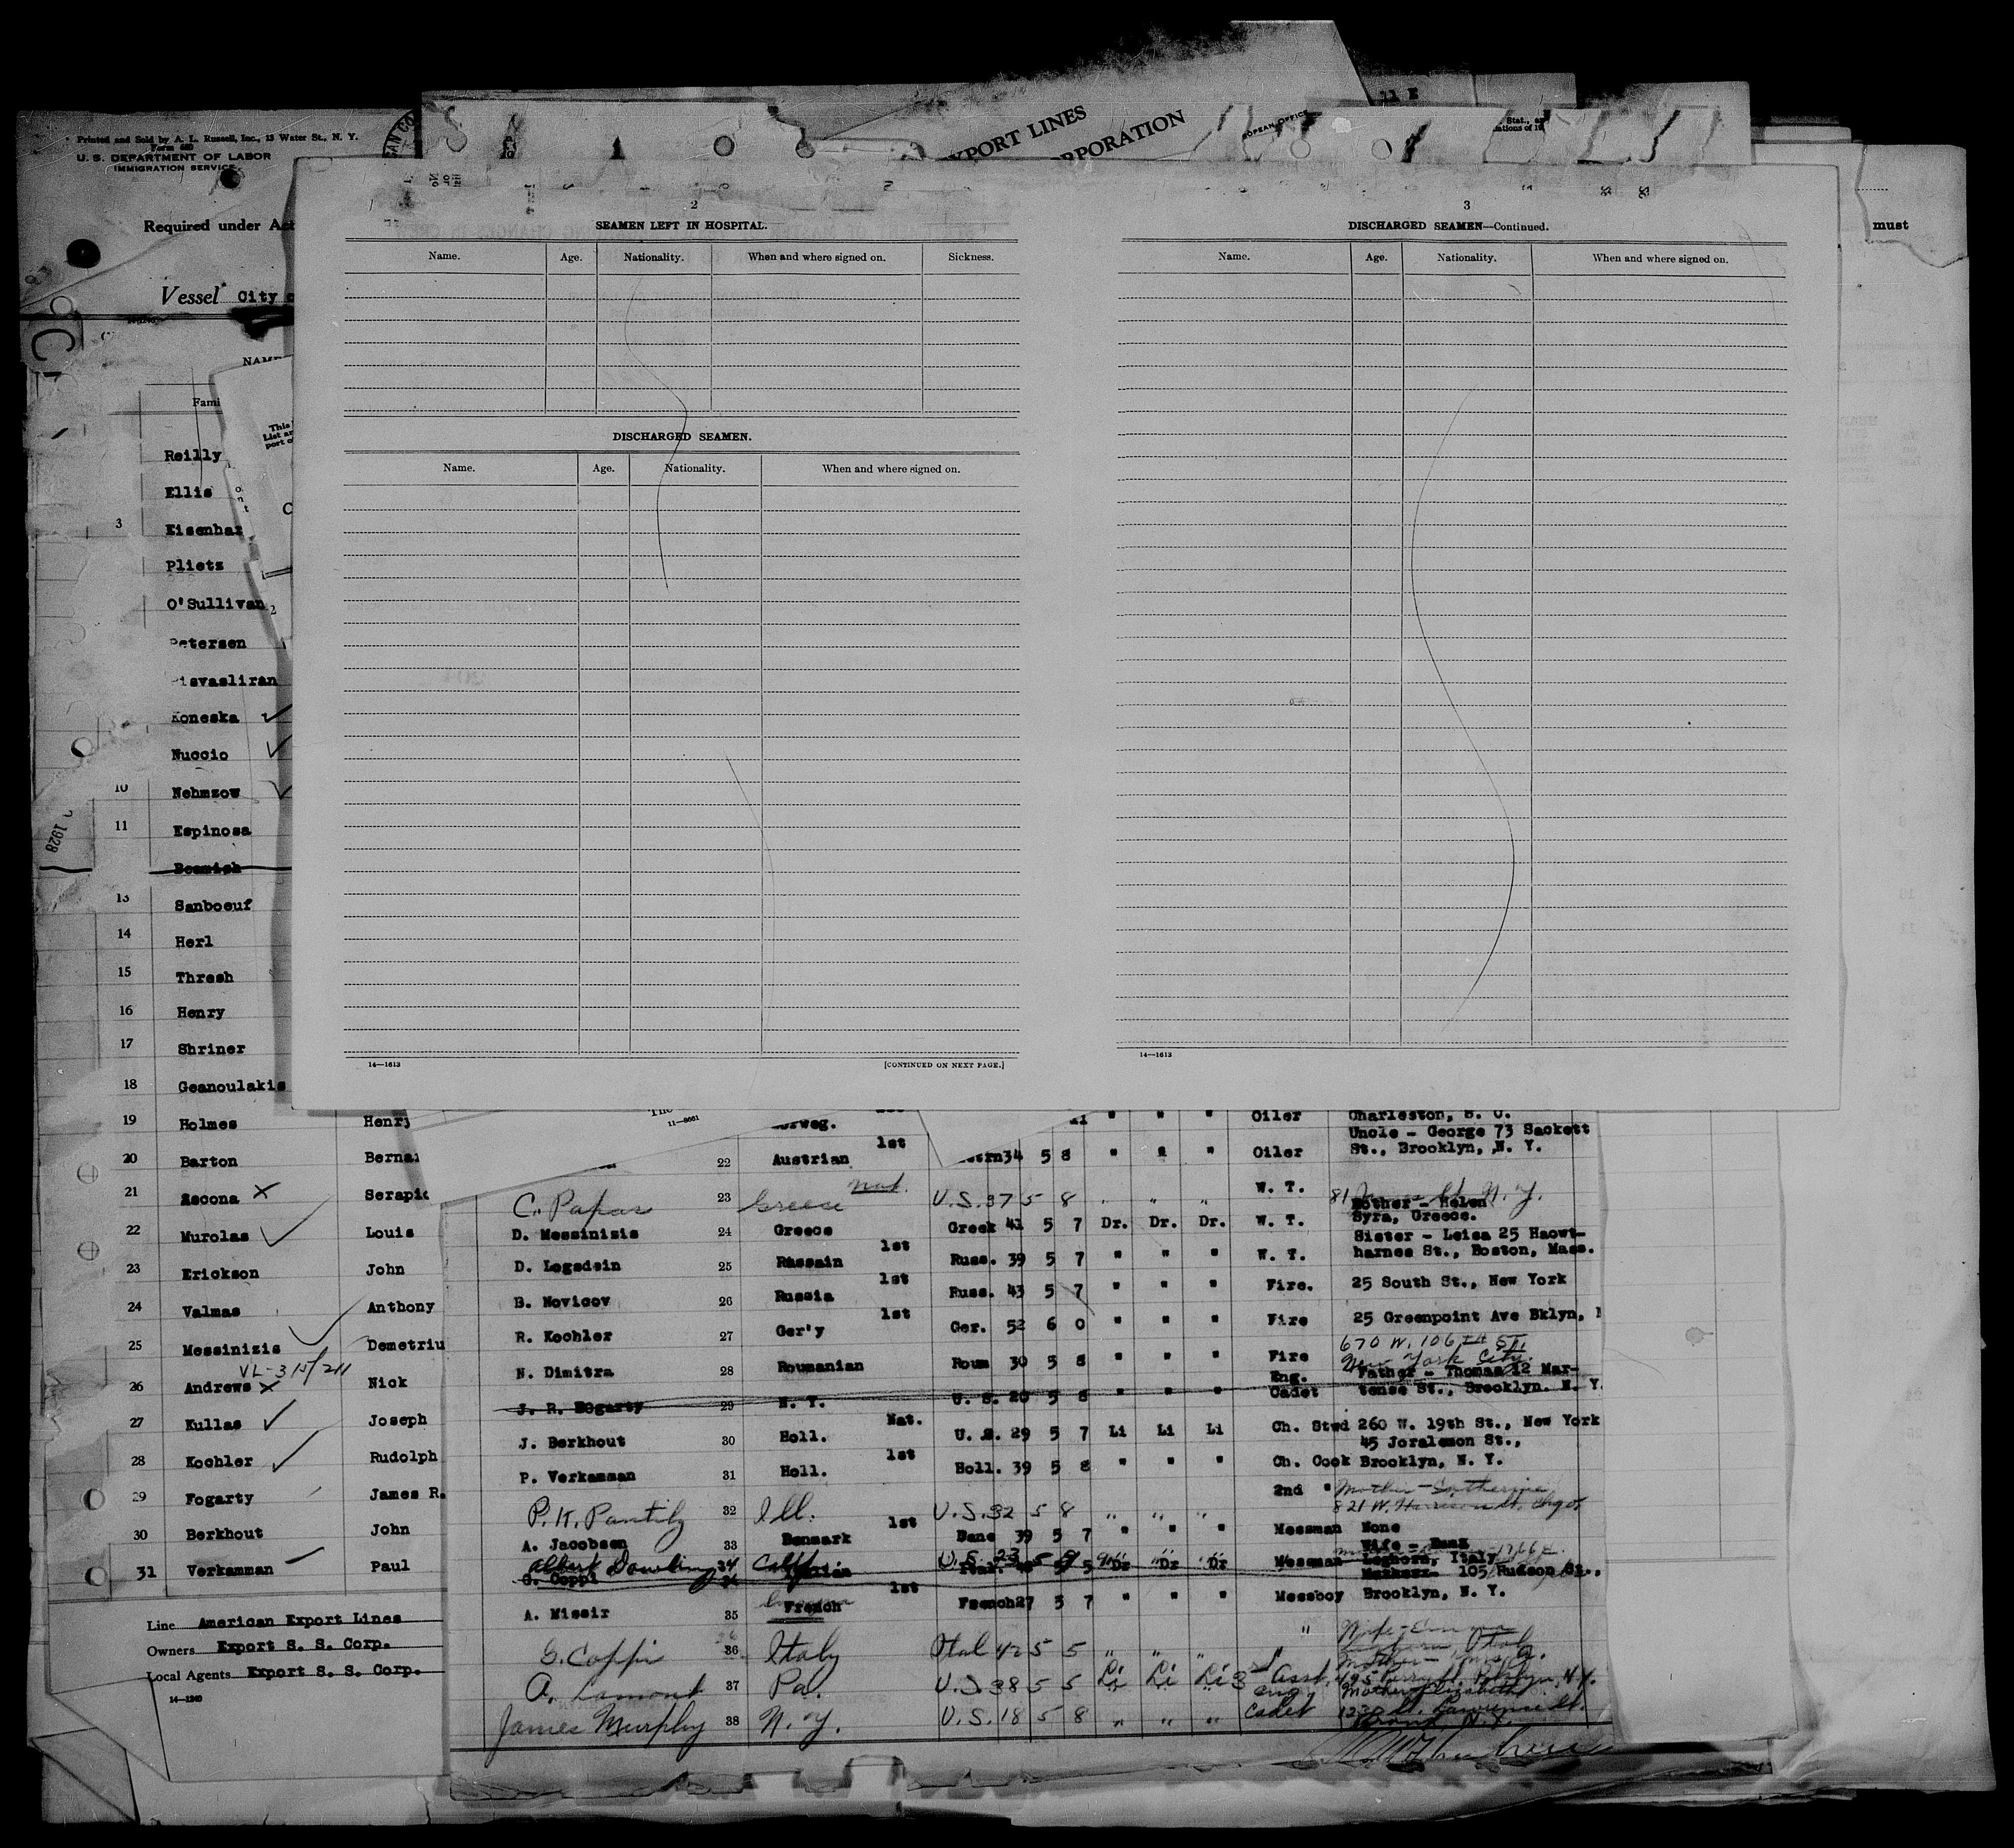 Printed and Sold by A. L. Russell, Inc., 13 Water St., N. Y.
Form 680
U. S. DEPARTMENT OF LABOR
IMMIGRATION SERVICE
Required under Act
Vessel City
EXPORT LINES
CORPORATION
must
2
SEAMEN LEFT IN HOSPITAL.
Name. Age. Nationality. When and where signed on. Sickness.
DISCHARGED SEAMEN.
Name. Age. Nationality. When and where signed on.
14—1613 [CONTINUED ON NEXT PAGE.]
3
DISCHARGED SEAMEN—Continued.
Name. Age. Nationality. When and where signed on.
14—1613
Fami
Reilly
Ellis
3 Eisenhar
Plietz
O'Sullivan
Petersen
Koneska
Nuccio
10 Nehmzow
11 Espinosa
Beamish
13 Sanboeuf
14 Herl
15 Thresh
16 Henry
17 Shriner
18 Geanoulakis
19 Holmes Henry
20 Barton Berna
21 Ascona Serapio
22 Murolas Louis
23 Erickson John
24 Valmas Anthony
25 Messinizis Demetriu
26 Andrews Nick
27 Kullas Joseph
28 Kochler Rudolph
29 Fogarty James R.
30 Berkhout John
31 Verkamman Paul
Line American Export Lines
Owners Export S. S. Corp.
Local Agents Export S. S. Corp.
14—1240
1928
11—8661
Oiler Charleston, S. C.
Uncle - George 73 Sackett
22 Austrian 1st 34 5 8 " " " Oiler St., Brooklyn, N. Y.
C. Papas 23 Greece Nat. U.S. 37 5 8 " " " W. T. N. Y.
Mother - Helen
D. Messinizis 24 Greece Greek 41 5 7 Dr. Dr. Dr. W. T. Syra, Greece.
Sister - Leisa 25 Haowt-
D. Logsdein 25 Russain 1st Russ. 39 5 7 " " " W. T. harnes St., Boston, Mass.
B. Novicov 26 Russia 1st Russ. 43 5 7 " " " Fire. 25 South St., New York
R. Kochler 27 Ger'y 1st Ger. 52 6 0 " " " Fire 25 Greenpoint Ave Bklyn,
670 W. 106th St.
N. Dimitra 28 Roumanian Roum 30 5 8 " " " Fire New York City.
Eng. Father - Thomas 12 Mar-
J. R. Fogarty 29 N. Y. U. S. 20 5 8 " " " Cadet tense St., Brooklyn. N. Y.
J. Berkhout 30 Holl. Nat. U. S. 29 5 7 Li Li Li Ch. Stwd 260 W. 19th St., New York
45 Joralemon St.,
P. Verkamman 31 Holl. 1st Holl. 39 5 8 " " " Ch. Cook Brooklyn, N. Y.
2nd " Mother - Catherine
P. K. Pantily 32 Ill. U.S. 32 5 8 " " " 821 W. Harrison St. Chgo.
A. Jacobsen 33 Denmark 1st Dane 39 5 7 " " " Messman None
Albert Dowling 34 Calif U.S. 23 5 9
G. Coppi 5 5 Dr Dr Dr Messman Leghorn, Italy
105 Hudson St.,
A. Missir 35 French 1st French 27 5 7 " " " Messboy Brooklyn, N. Y.
G. Coppi 36 Italy Ital 42 5 5 " " " " Wife - Emma
A. Lamont 37 Pa. U.S. 38 5 5 Li Li Li 3rd Asst. eng.
Mother - Elizabeth
James Murphy 38 N. Y. U.S. 18 5 8 " " " Cadet
Bronx N.Y.